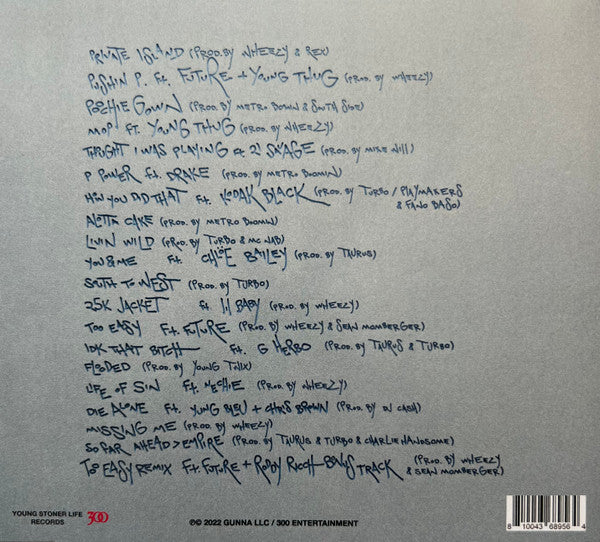 PRIVATE ISLAND (PROD. BY WHEEZY & REX)
PUSHIN P. Ft. FUTURE + YOUNG THUG (PROD. BY WHEEZY)
POOCHIE GOWN (PROD. BY METRO BOOMIN & SOUTH SIDE)
MOP FT. YOUNG THUG (PROD. BY WHEEZY)
THOUGHT I WAS PLAYING Ft. 21 SAVAGE (PROD. BY MIKE WILL)
P POWER Ft. DRAKE (PROD. BY METRO BOOMIN)
HOW YOU DID THAT Ft. KODAK BLACK (PROD. BY TURBO / PLAYMAKERS
& FANO BASO)
ALOTTA CAKE (PROD. BY METRO BOOMIN)
LIVIN WILD (PROD. BY TURBO & MC NAB)
YOU & ME Ft. CHLÖE BAILEY (PROD. BY TAURUS)
SOUTH TO WEST (PROD. BY TURBO)
25K JACKET Ft. lil BABY (PROD. BY WHEEZY)
TOO EASY Ft. FUTURE (PROD. BY WHEEZY & SEAN MOMBERGER)
IDK THAT BITCH Ft. G HERBO (PROD. BY TAURUS & TURBO)
FLOODED (PROD. BY YOUNG TWIX)
LIFE OF SIN Ft. NECHIE (PROD. BY WHEEZY)
DIE ALONE Ft. YUNG BLEU + CHRIS BROWN (PROD. BY DJ CASH)
MISSING ME (PROD. BY WHEEZY)
SO FAR AHEAD > EMPIRE (PROD. BY TAURUS & TURBO & CHARLIE HANDSOME)
TOO EASY REMIX Ft. FUTURE + RODDY RICCH - BONUS TRACK (PROD. BY WHEEZY
& SEAN MOMBERGER)
YOUNG STONER LIFE
RECORDS 300
℗© 2022 GUNNA LLC / 300 ENTERTAINMENT
8 10043 68956 4